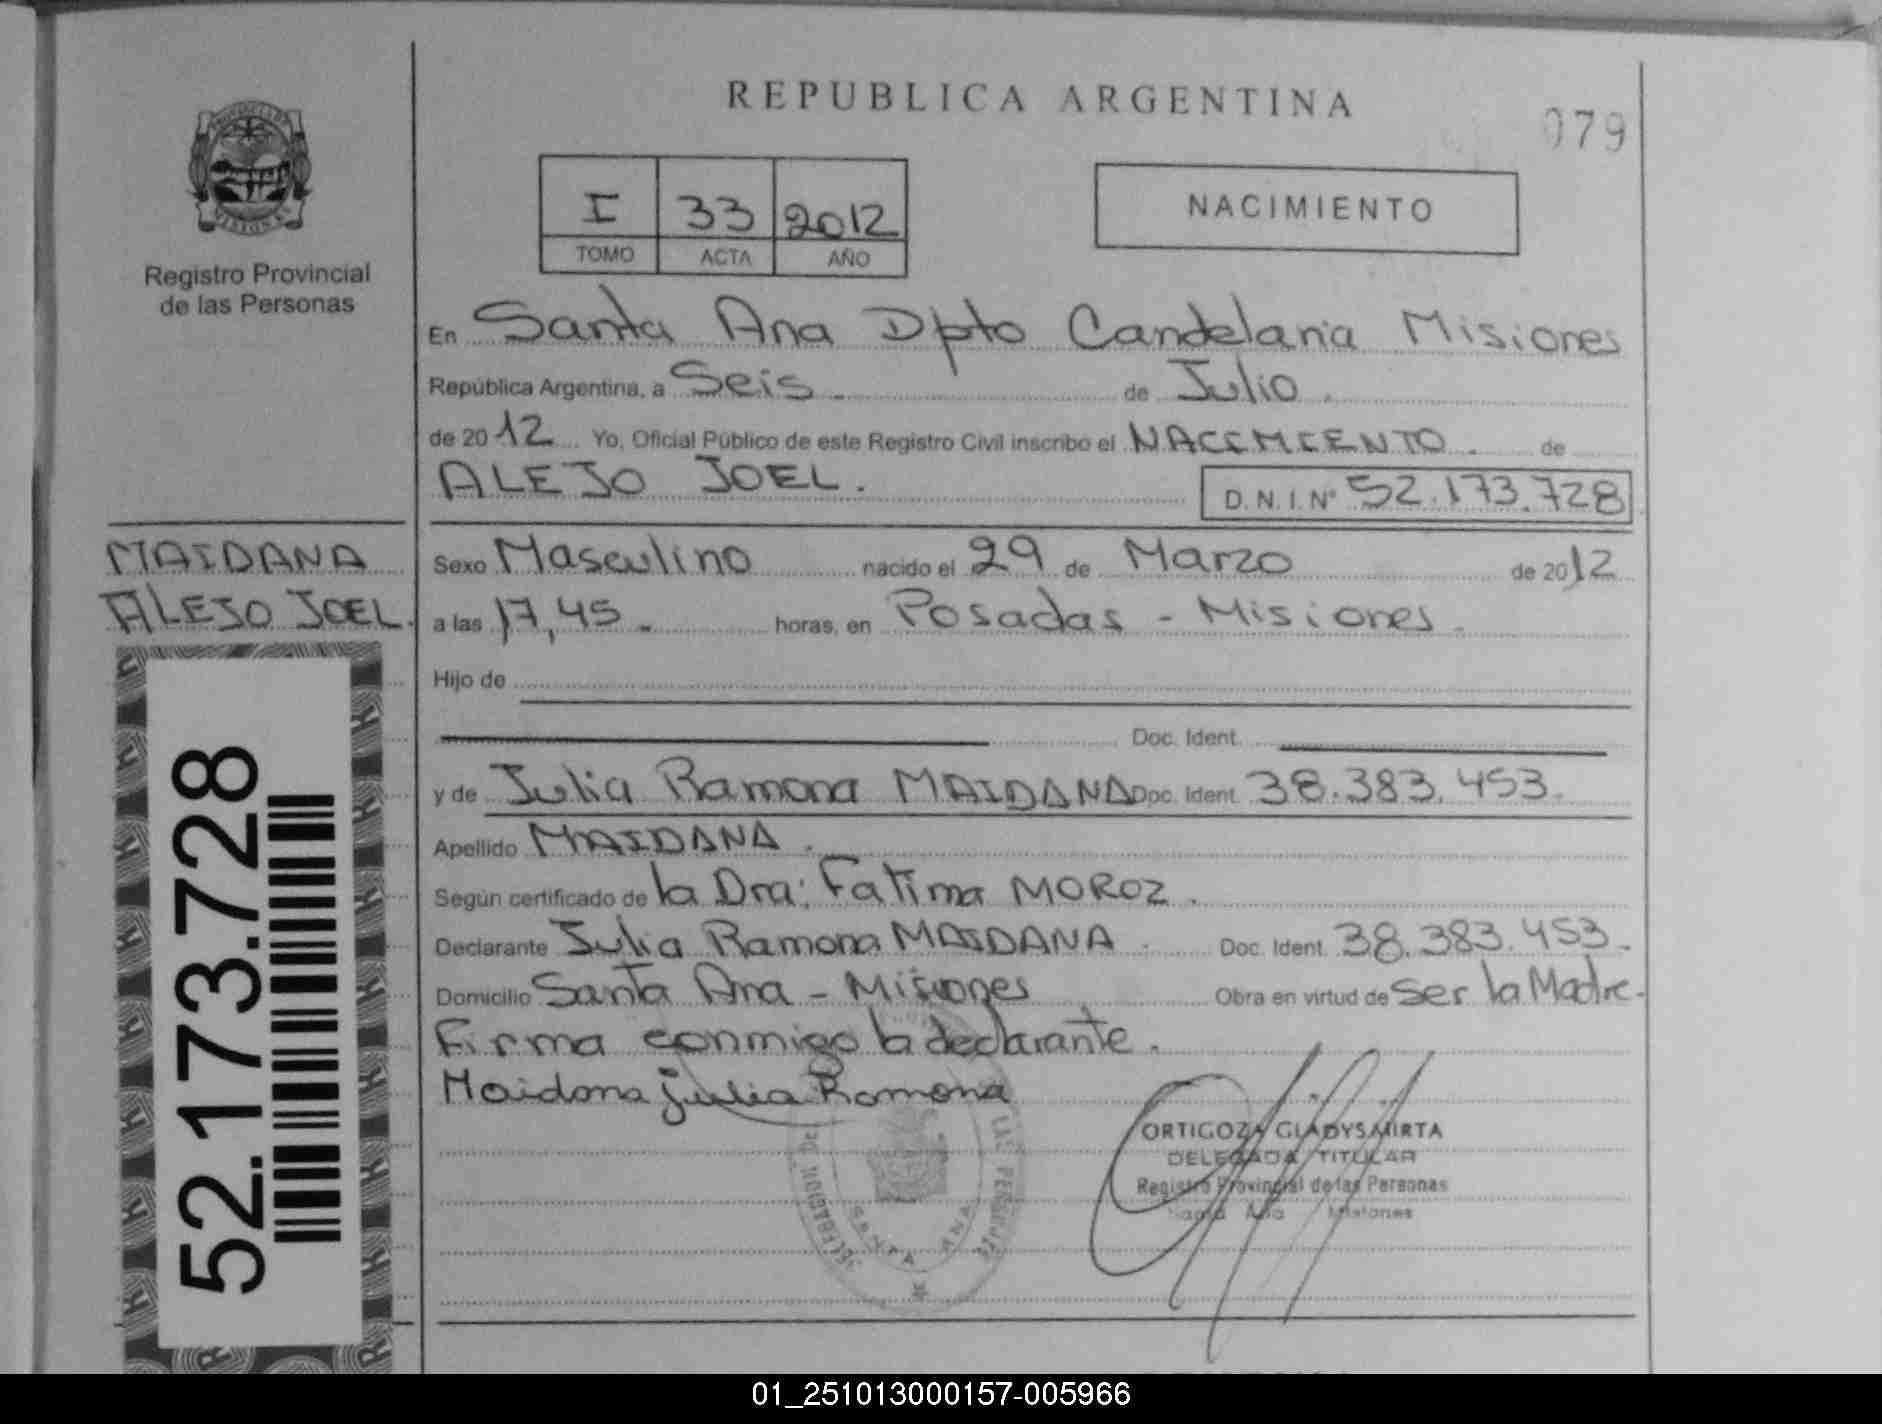 REPUBLICA ARGENTINA
079
I 33 2012
TOMO ACTA AÑO
NACIMIENTO
Registro Provincial
de las Personas
En Santa Ana Dpto Candelaria Misiones
República Argentina, a Seis. de Julio.
de 20 12 Yo, Oficial Público de este Registro Civil inscribo el NACIMIENTO. de
ALEJO JOEL. D.N.I.Nº 52.173.728
MAIDANA
ALEJO JOEL.
Sexo Masculino nacido el 29 de Marzo de 2012
a las 17,45. horas, en Posadas - Misiones.
Hijo de
Doc. Ident.
y de Julia Ramona MAIDANA Doc. Ident. 38.383.453.
Apellido MAIDANA.
Según certificado de la Dra: Fatima MOROZ.
Declarante Julia Ramona MAIDANA. Doc. Ident. 38.383.453.
Domicilio Santa Ana - Misiones Obra en virtud de Ser la Madre.
Firma conmigo la declarante.
Maidana Julia Ramona
ORTIGOZA GLADYS MIRTA
DELEGADA TITULAR
Registro Provincial de las Personas
Santa Ana Misiones
DELEGACION DE LAS PERSONAS
SANTA ANA
52.173.728
01_251013000157-005966